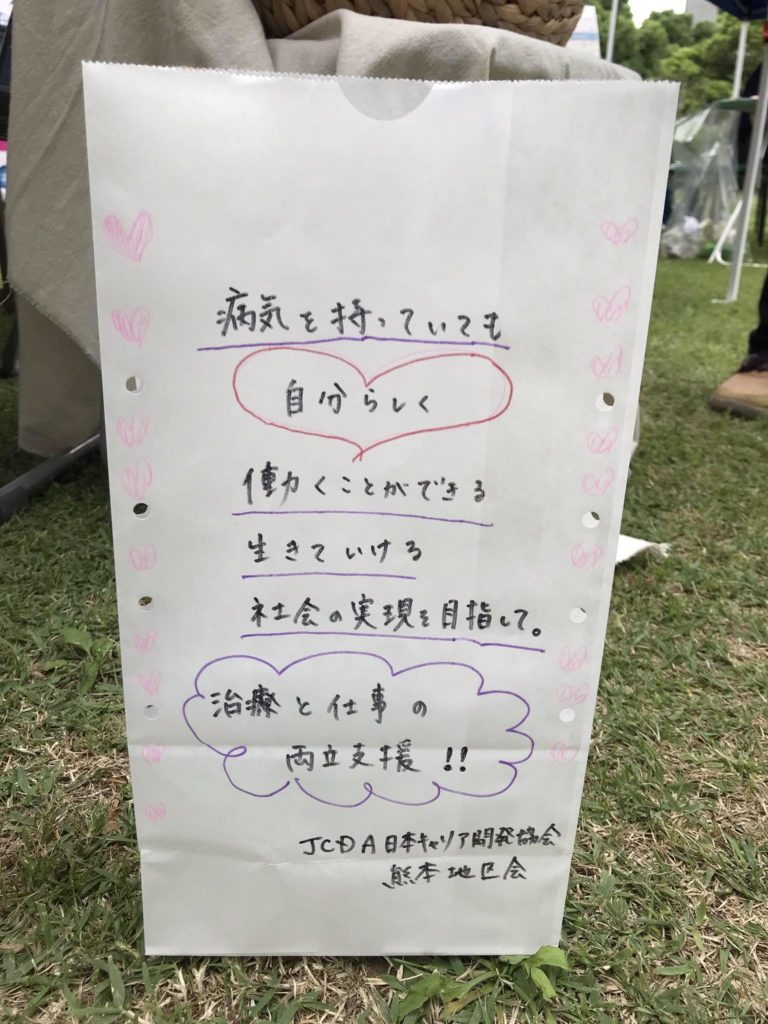 病気を持っていても
自分らしく
働くことができる
生きていける
社会の実現を目指して。
治療と仕事の
両立支援!!
JCDA日本キャリア開発協会
熊本地区会